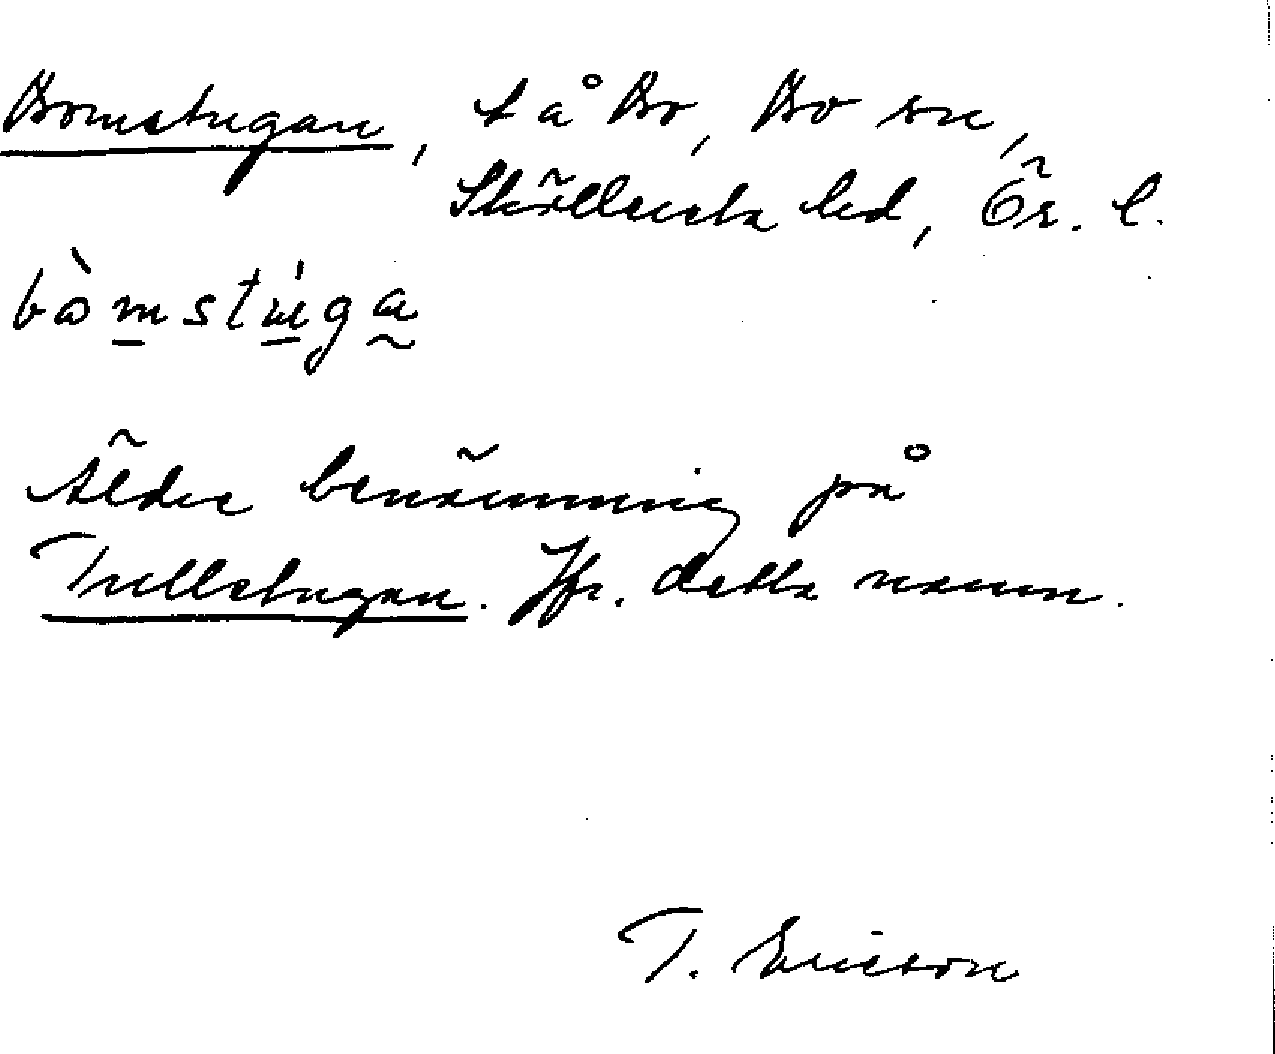 Bomstugan, t å Bo, Bo sn,
Sköllersta hd, Ör. l.
bòmstúga
Äldre benämning på
Tullstugan. Jfr. detta namn.
T. Ericson